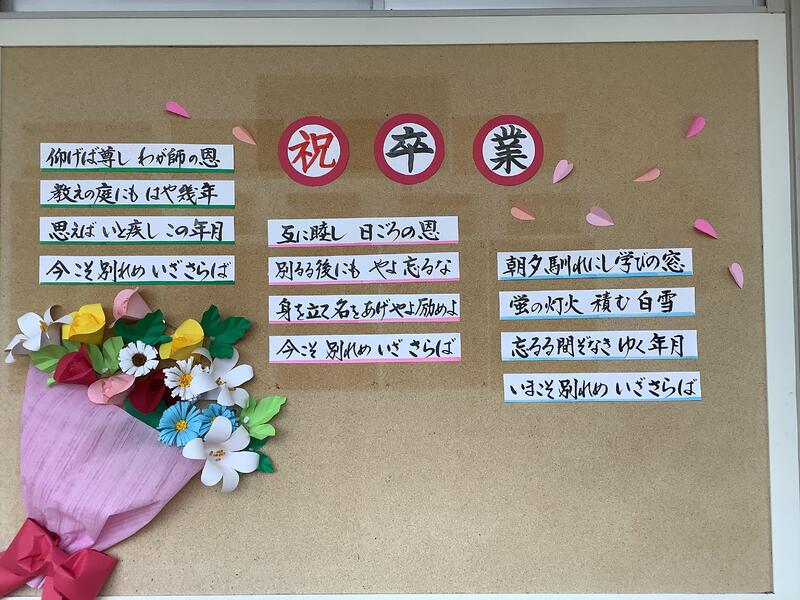 祝卒業
仰げば尊し わが師の恩
教えの庭にも はや幾年
思えば いと疾し この年月
今こそ 別れめ いざさらば
互に睦し 日ごろの恩
別るる後にも やよ 忘るな
身を立て 名をあげ やよ 励めよ
今こそ 別れめ いざ さらば
朝夕 馴れにし 学びの窓
蛍の灯火 積む 白雪
忘るる 間ぞなき ゆく 年月
いまこそ 別れめ いざさらば